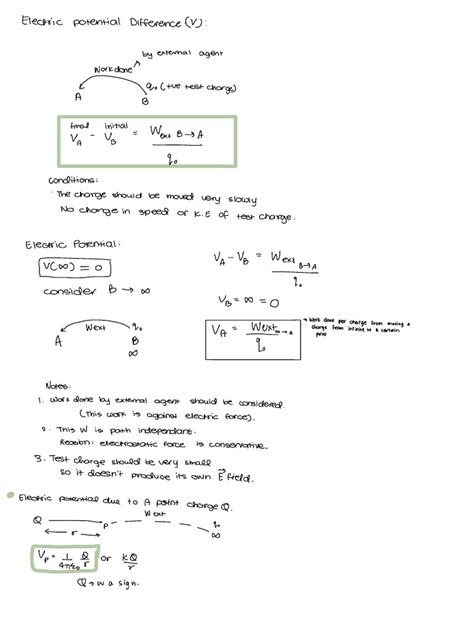 Electric potential Difference (V):
by external agent
Workdone
q₀ (+ve test charge)
A
B
final initial
V_A - V_B = W_ext B→A / q₀
conditions:
· The charge should be moved very slowly
No change in speed or K.E of test charge.
Electric Potential:
V(∞) = 0
V_A - V_B = W_ext B→A / q₀
consider B → ∞
V_B = ∞ = 0
Wext q₀
A B
∞
V_A = Wext ∞→A / q₀
→ Work done per charge from moving a
charge from infinite to a certain
point
Notes:
1. Work done by external agent should be considered.
(This work is against electric force).
2. This W is path independant.
Reason: electrostatic force is conservative.
3. Test charge should be very small
so it doesn't produce its own E⃗ field.
Electric potential due to A point charge Q.
Wext
Q P q₀
r ∞
V_P = 1/4πε₀ Q/r or kQ/r
Q → w a sign.